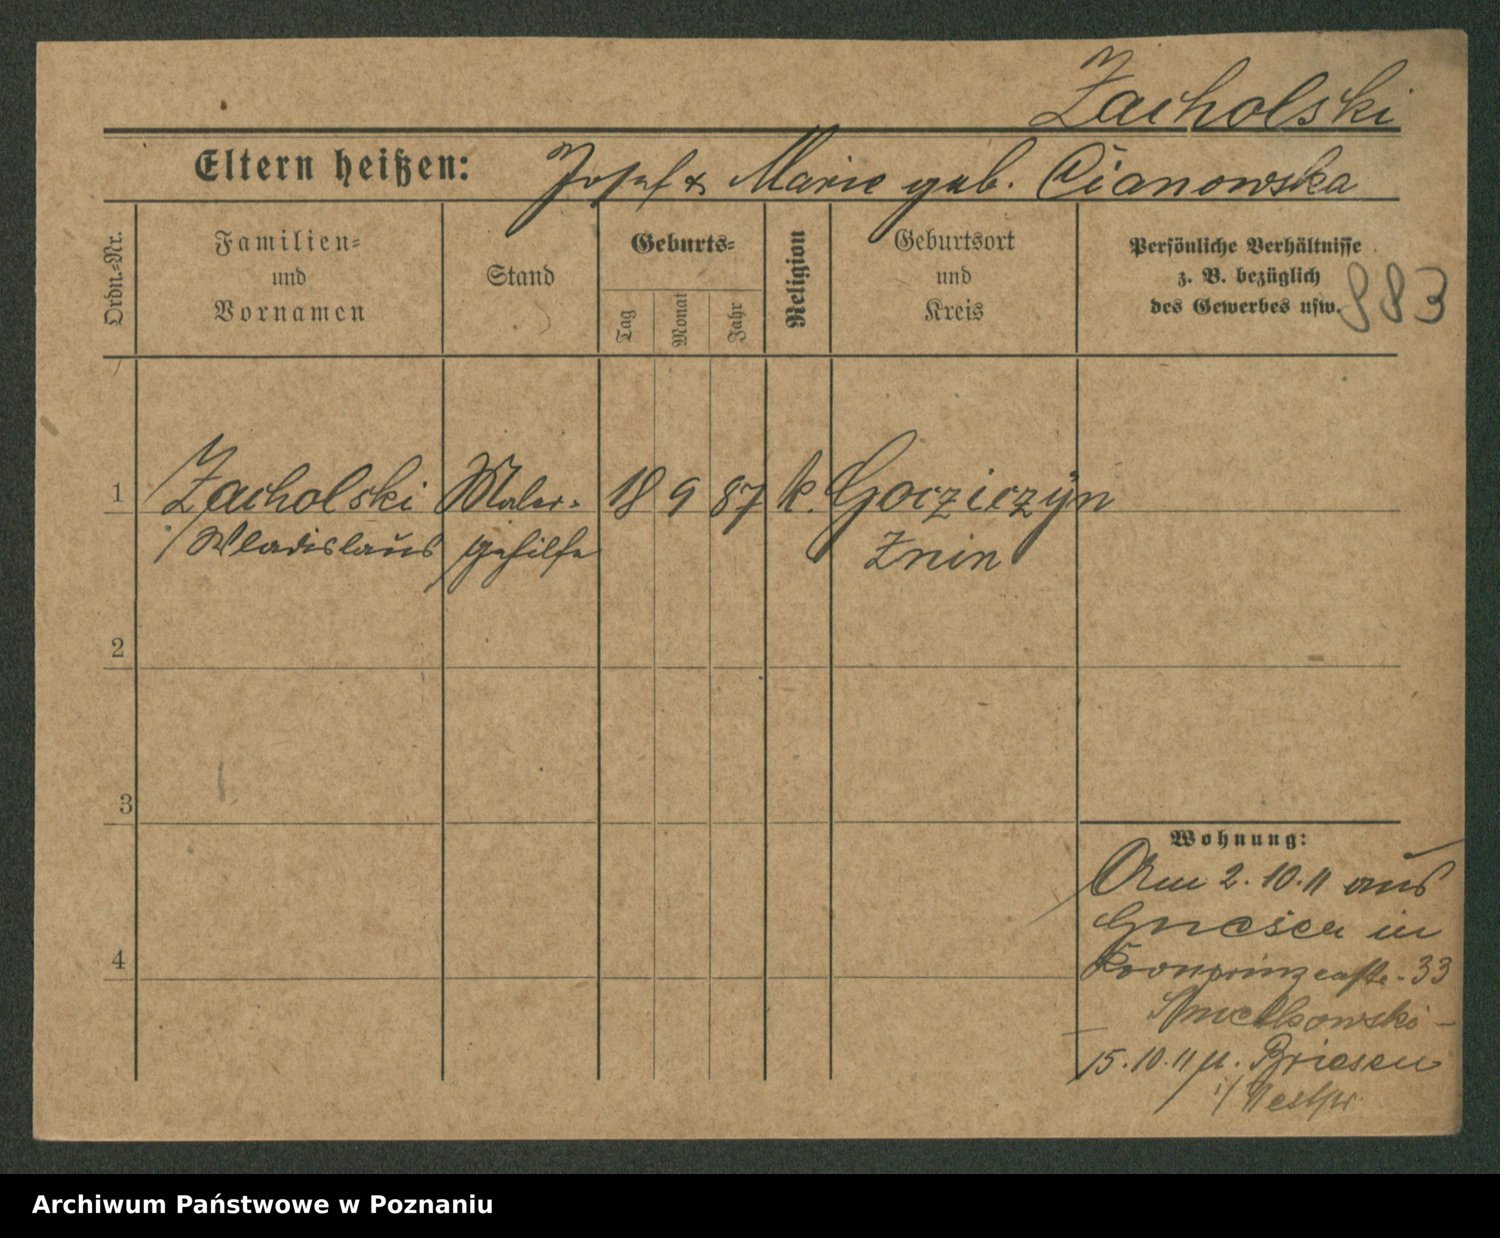 Zacholski
Eltern heißen: Josef & Marie geb. Cianowska
Ordn.=Nr.
Familien=
und
Vornamen
Stand
Geburts=
Tag
Monat
Jahr
Religion
Geburtsort
und
Kreis
Persönliche Verhältnisse
z. B. bezüglich
des Gewerbes usw.
883
1 Zacholski Maler= 18 9 87 k. Gocziczyn
Wladislaus gehilfe Znin
2
3
4
Wohnung:
Am 2.10.11 aus
Gnesen in
Kronprinzenstr. 33
Smelkowski
15.10.11 n. Briesen
i/ Westpr.
Archiwum Państwowe w Poznaniu